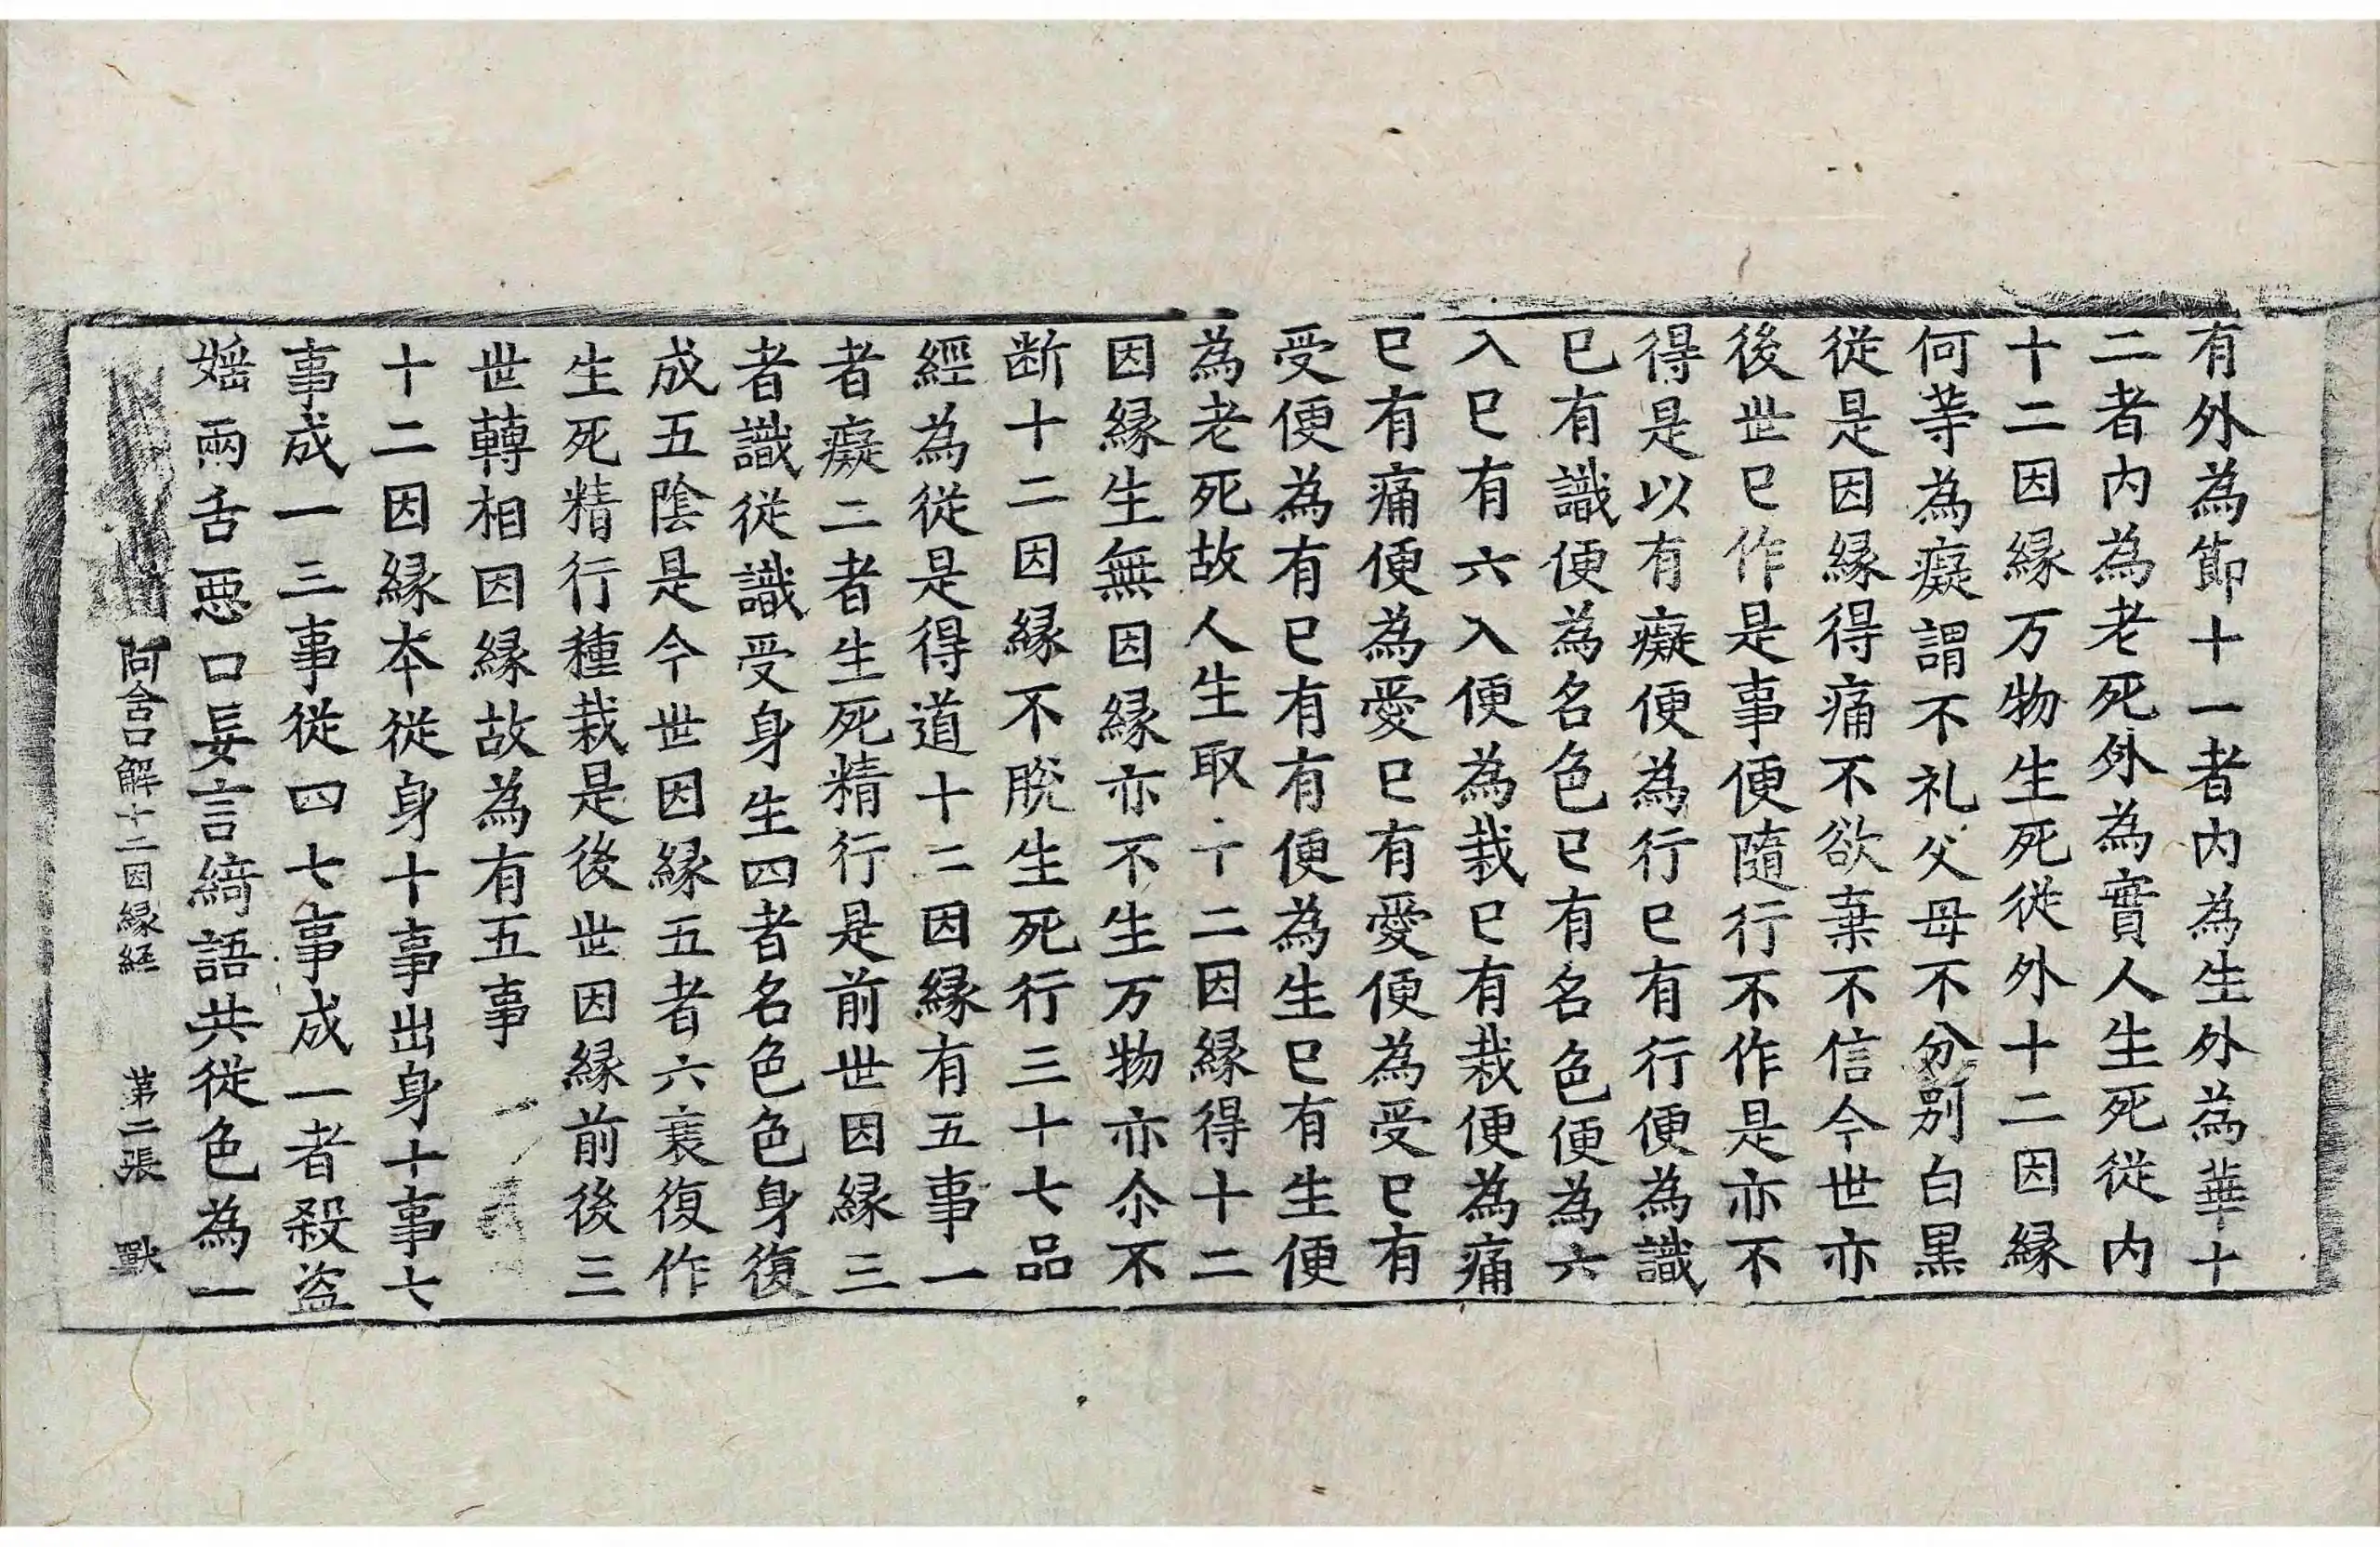 有外為節十一者内為生外為華十
二者内為老死外為實人生死従内
十二因縁万物生死従外十二因縁
何䓁為癡謂不礼父母不分別白黒
従是因縁得痛不欲棄不信今世亦
後世已作是事便隨行不作是亦不
得是以有癡便為行已有行便為識
已有識便為名色已有名色便為六
入已有六入便為栽已有栽便為痛
已有痛便為愛已有愛便為受已有
受便為有已有有便為生已有生便
為老死故人生取十二因縁得十二
因縁生無因縁亦不生万物亦尒不
断十二因縁不脫生死行三十七品
經為従是得道十二因縁有五事一
者癡二者生死精行是前世因縁三
者識従識受身生四者名色色身復
成五陰是今世因縁五者六衰復作
生死精行種栽是後世因縁前後三
世轉相因縁故為有五事
十二因縁本従身十事出身十事七
事成一三事従四七事成一者殺盗
婬兩舌悪口妄言綺語共従色為一
阿含口解十二因縁経 第二張 獸